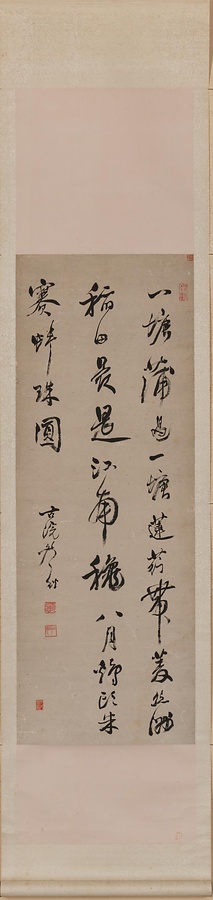 一塘蒲過一塘蓮荇葉菱絲滿
稻田最是江南穐八月鷄頭米
賽蚌珠圓
古浣